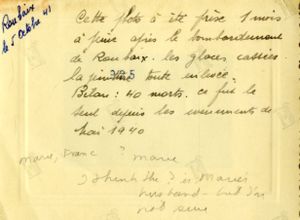 Roubaix
le 5 Octobre 41
Cette photo a été prise 1 mois
à peine après le bombardement
de Roubaix. les glaces cassées.
la peinture toute enlevée.
Bilan: 40 morts. ce fut le
seul depuis les évènements de
Mai 1940
Marie, Franc ? Marie
I think the ? is Marie's
husband - but I'm
not sure